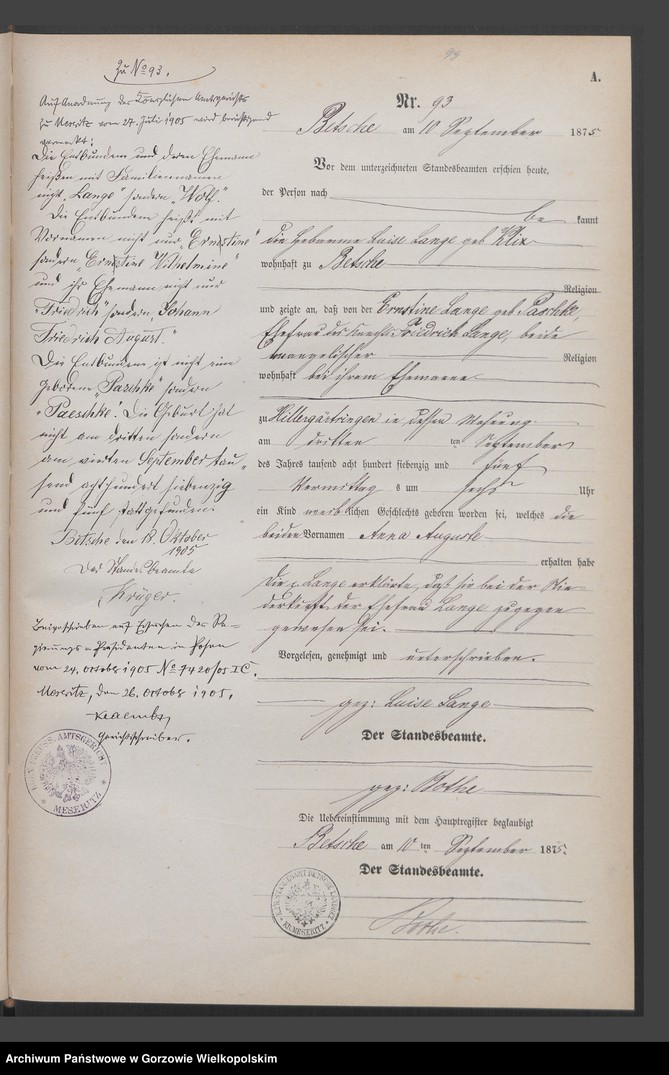 99
A.
Zu No 93.
Auf Anordnung des Königlichen Amtsgerichts
zu Meseritz vom 27. Juli 1905 wird berichtigend
vermerkt:
Die Entbundene und deren Ehemann
heißen mit Familiennamen
nicht „Lange" sondern „Wolf".
Die Entbundene heißt mit
Vornamen nicht nur „Ernestine"
sondern „Ernestine Wilhelmine"
und ihr Ehemann nicht nur
„Friedrich" sondern „Johann
Friedrich August."
Die Entbundene ist nicht eine
geborene „Paschke" sondern
„Paeschke". Die Geburt hat
nicht am dritten sondern
am vierten September tau„
send achthundert siebenzig
und fünf stattgefunden.
Betsche den 18. Oktober
1905
Der Standesbeamte
Krüger.
Beigeschrieben auf Ersuchen des Re=
gierungs-Präsidenten in Posen
vom 24. October 1905 No 7420/05 I C.
Meseritz, den 26. October 1905.
Gerichtsschreiber.
KÖN. PREUSS. AMTSGERICHT
* MESERITZ *
Nr. 93
Betsche am 10 September 1875
Vor dem unterzeichneten Standesbeamten erschien heute,
der Person nach
be kannt
die Hebamme Luise Lange geb Klix
wohnhaft zu Betsche
Religion
und zeigte an, daß von der Ernstine Lange geb. Paschke,
Ehefrau des Knechts Friedrich Lange, beide
evangelischer Religion
wohnhaft bei ihrem Ehemanne
zu Hillergärtringen in dessen Wohnung
am dritten ten September
des Jahres tausend acht hundert siebenzig und fünf
Vormittag s um sechs Uhr
ein Kind weib lichen Geschlechts geboren worden sei, welches die
beiden Vornamen Anna Auguste
erhalten habe
Die p. Lange erklärte, daß sie bei der Nie=
derkunft der Ehefrau Lange zugegen
gewesen sei.
Vorgelesen, genehmigt und unterschrieben.
gez: Luise Lange
Der Standesbeamte.
gez: Bothe
Die Uebereinstimmung mit dem Hauptregister beglaubigt
Betsche am 10 ten September 1875.
Der Standesbeamte.
Bothe.
KR. MESERITZ
Archiwum Państwowe w Gorzowie Wielkopolskim